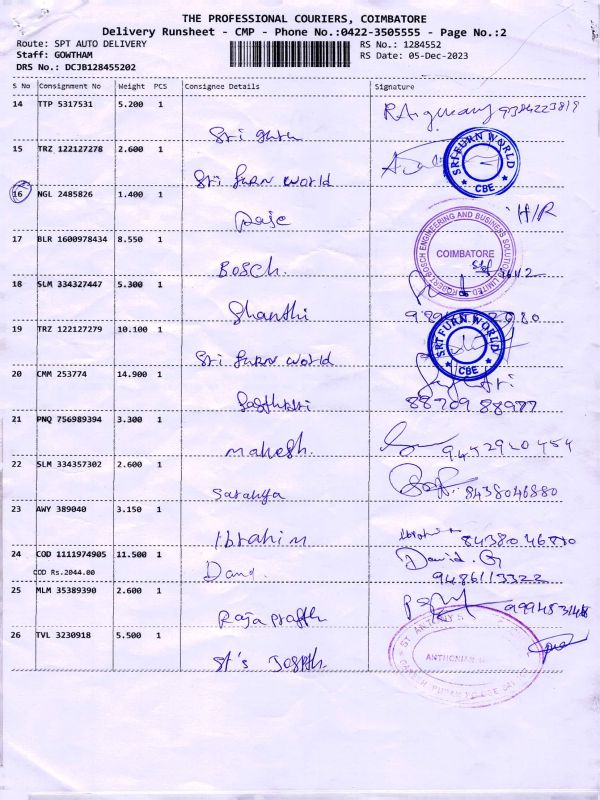 THE PROFESSIONAL COURIERS, COIMBATORE
Delivery Runsheet - CMP - Phone No.:0422-3505555 - Page No.:2
Route: SPT AUTO DELIVERY RS No.: 1284552
Staff: GOWTHAM RS Date: 05-Dec-2023
DRS No.: DCJB128455202
S No Consignment No Weight PCS Consignee Details Signature
14 TTP 5317531 5.200 1
Sri
15 TRZ 122127278 2.600 1 SRI FURN WORLD CBE
Sri furn world
16 NGL 2485826 1.400 1 H/R
17 BLR 1600978434 8.550 1 COIMBATORE
BOSCH.
18 SLM 334327447 5.300 1
Shanthi
19 TRZ 122127279 10.100 1 SRI FURN WORLD CBE
Sri furn world
20 CMM 253774 14.900 1
88709 88977
21 PNQ 756989394 3.300 1
mahesh.
22 SLM 334357302 2.600 1
Saranya 8438046880
23 AWY 389040 3.150 1
Ibrahim
24 COD 1111974905 11.500 1 David.G
COD Rs.2044.00 9486113322
25 MLM 35389390 2.600 1
Raja
26 TVL 3230918 5.500 1
St's Joseph